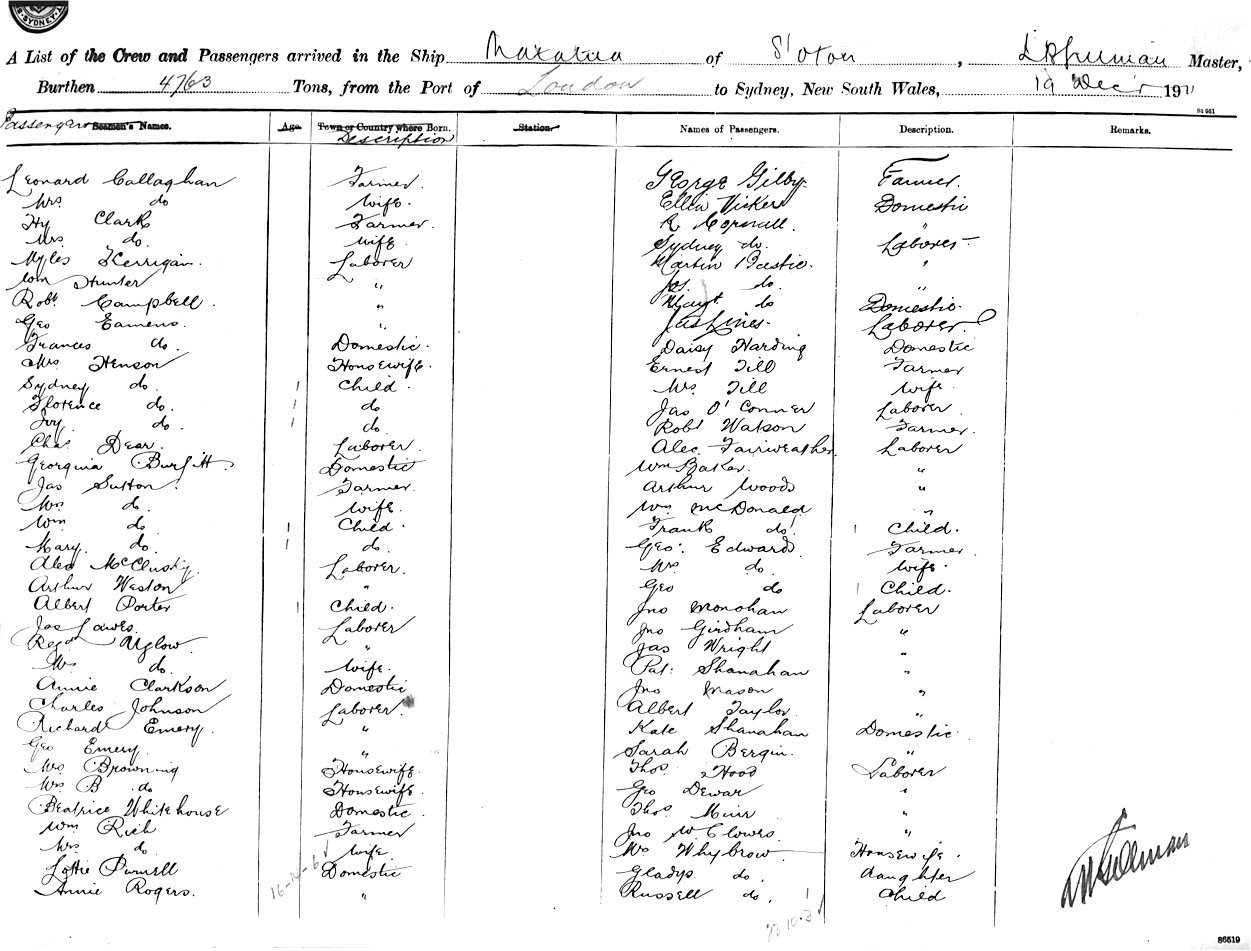 SYDNEY
A List of the Crew and Passengers arrived in the Ship Makarua of S'oton, Master,
Burthen 4763 Tons, from the Port of London to Sydney, New South Wales, 19 Dec'r 1911
84 961
Passengers Seamen's Names. Age Town or Country where Born. Station. Names of Passengers. Description. Remarks.
Description
Leonard Callaghan Farmer. George Gilby. Farmer.
Mrs do wife. Ellen Vickers Domestic
Hy Clark Farmer. R "
Mrs do. wife. Sydney do. Laborer
Myles Kerrigan. Laborer Martin Bastic. "
Wm Hunter " Jos. do. "
Robt Campbell. " Magt do Domestic.
Geo Eamens. " Jas Lines. Laborer.
Frances do. Domestic. Daisy Harding Domestic
Mrs Henson Housewife. Ernest Till Farmer
Sydney do. 1 Child. Mrs Till wife.
Florence do. 1 do Jas O'Conner Laborer
Ivy do. 1 do. Robt Watson Farmer.
Chas Dear. Laborer Alec Fairweather. Laborer
Georgina Burfitt Domestic Wm Baker. "
Jas Sutton. Farmer Arthur Woods "
Mrs do. wife. Wm McDonald "
Wm do. 1 Child. Frank do. 1 Child.
Mary. do. 1 do. Geo. Edwards. Farmer
Alec McClusky. Laborer. Mrs do. wife.
Arthur Weston " Geo do 1 Child.
Albert Porter 1 Child. Jno Monohan Laborer
Jas Lawes. Laborer Jno Girdham "
Regd Uglow. " Jas Wright "
Mrs do. wife. Pat. Shanahan "
Annie Clarkson Domestic Jno Mason "
Charles Johnson Laborer Albert Taylor. "
Richard Emery. " Kate Shanahan Domestic.
Geo Emery. " Sarah Bergin. "
Mrs Browning Housewife. Thos. Hood Laborer
Mrs B do. Housewife. Geo Dewar "
Beatrice Whitehouse Domestic. Thos. Muir "
Wm Rich Farmer Jno W. Clowes. "
Mrs do wife Mrs Whybrow Housewife.
Lottie Purnell Domestic Gladys do. daughter
Annie Rogers. " Russell do. 1 Child
86519